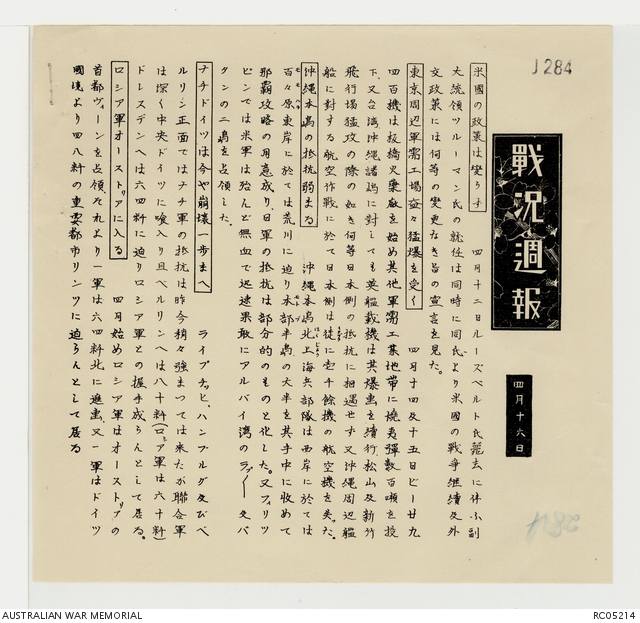 J284
戰況週報
四月十六日
米國の政策は變りず
四月十二日ルーズベルト氏薨去に伴ふ副
大統領ツルーマン氏の就任は同時に同氏より米國の戰爭継續及外
交政策には何等の變更なき旨の宣言を見た。
東京周辺軍需工場益々猛爆を受く
四月十四及十五日ビー廿九
四百機は板橋火薬廠を始め其他軍需工業地帯に燒夷彈數百噸を投
下、又台湾沖縄諸島に対しても英艦載機は其爆撃を續行、松山及新竹
飛行場猛攻の際の如き何等日本側の抵抗に相遇せず又沖縄周辺艦
船に対する航空作戰に於て日本側は徒に壱千餘機の航空機を失った。
沖縄本島の抵抗弱まる
沖縄本島北上海兵部隊は西岸に於ては
百々原東岸に於ては荒川に迫り本部半島の大半を其手中に收めて
那覇攻略の用意成り、日軍の抵抗は部分的のものと化した。又フィリッ
ピンでは米軍は殆んど無血で迅速果敢にアルバイ湾のラプー及バ
タンの二島を占領した。
ナチドイツは今や崩壊一歩まへ
ライプチッヒ、ハンブルグ及びベ
ルリン正面ではナチ軍の抵抗は昨今稍々強まつては来たが聯合軍
は深く中央ドイツに喰入り且ベルリンへは八十粁(ロシア軍は六十粁)
ドレスデンへは六四粁に迫りロシア軍との握手成らんとして居る。
ロシア軍オーストリアに入る
四月始めロシア軍はオーストリアの
首都ヴィーンを占領それより一軍は六四粁北に進出、又一軍はドイツ
國境より四八粁の重要都市リンツに迫らんとして居る
284
AUSTRALIAN WAR MEMORIAL
RC05214